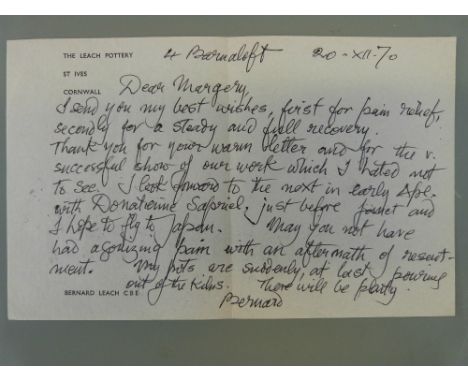 THE LEACH POTTERY 4 Barnaloft 20-XII-70
ST IVES
CORNWALL Dear Margery,
I send you my best wishes, first for pain relief,
secondly for a steady and full recovery.
Thank you for your warm letter and for the v.
successful show of our work which I hated not
to see. I look forward to the next in early Apl.
with Donatienne Sapriel, just before Janet and
I hope to fly to Japan. May you not have
had agonizing pain with an aftermath of resent-
ment. My pots are suddenly, at last pouring
out of the kilns. There will be plenty.
BERNARD LEACH C B E Bernard